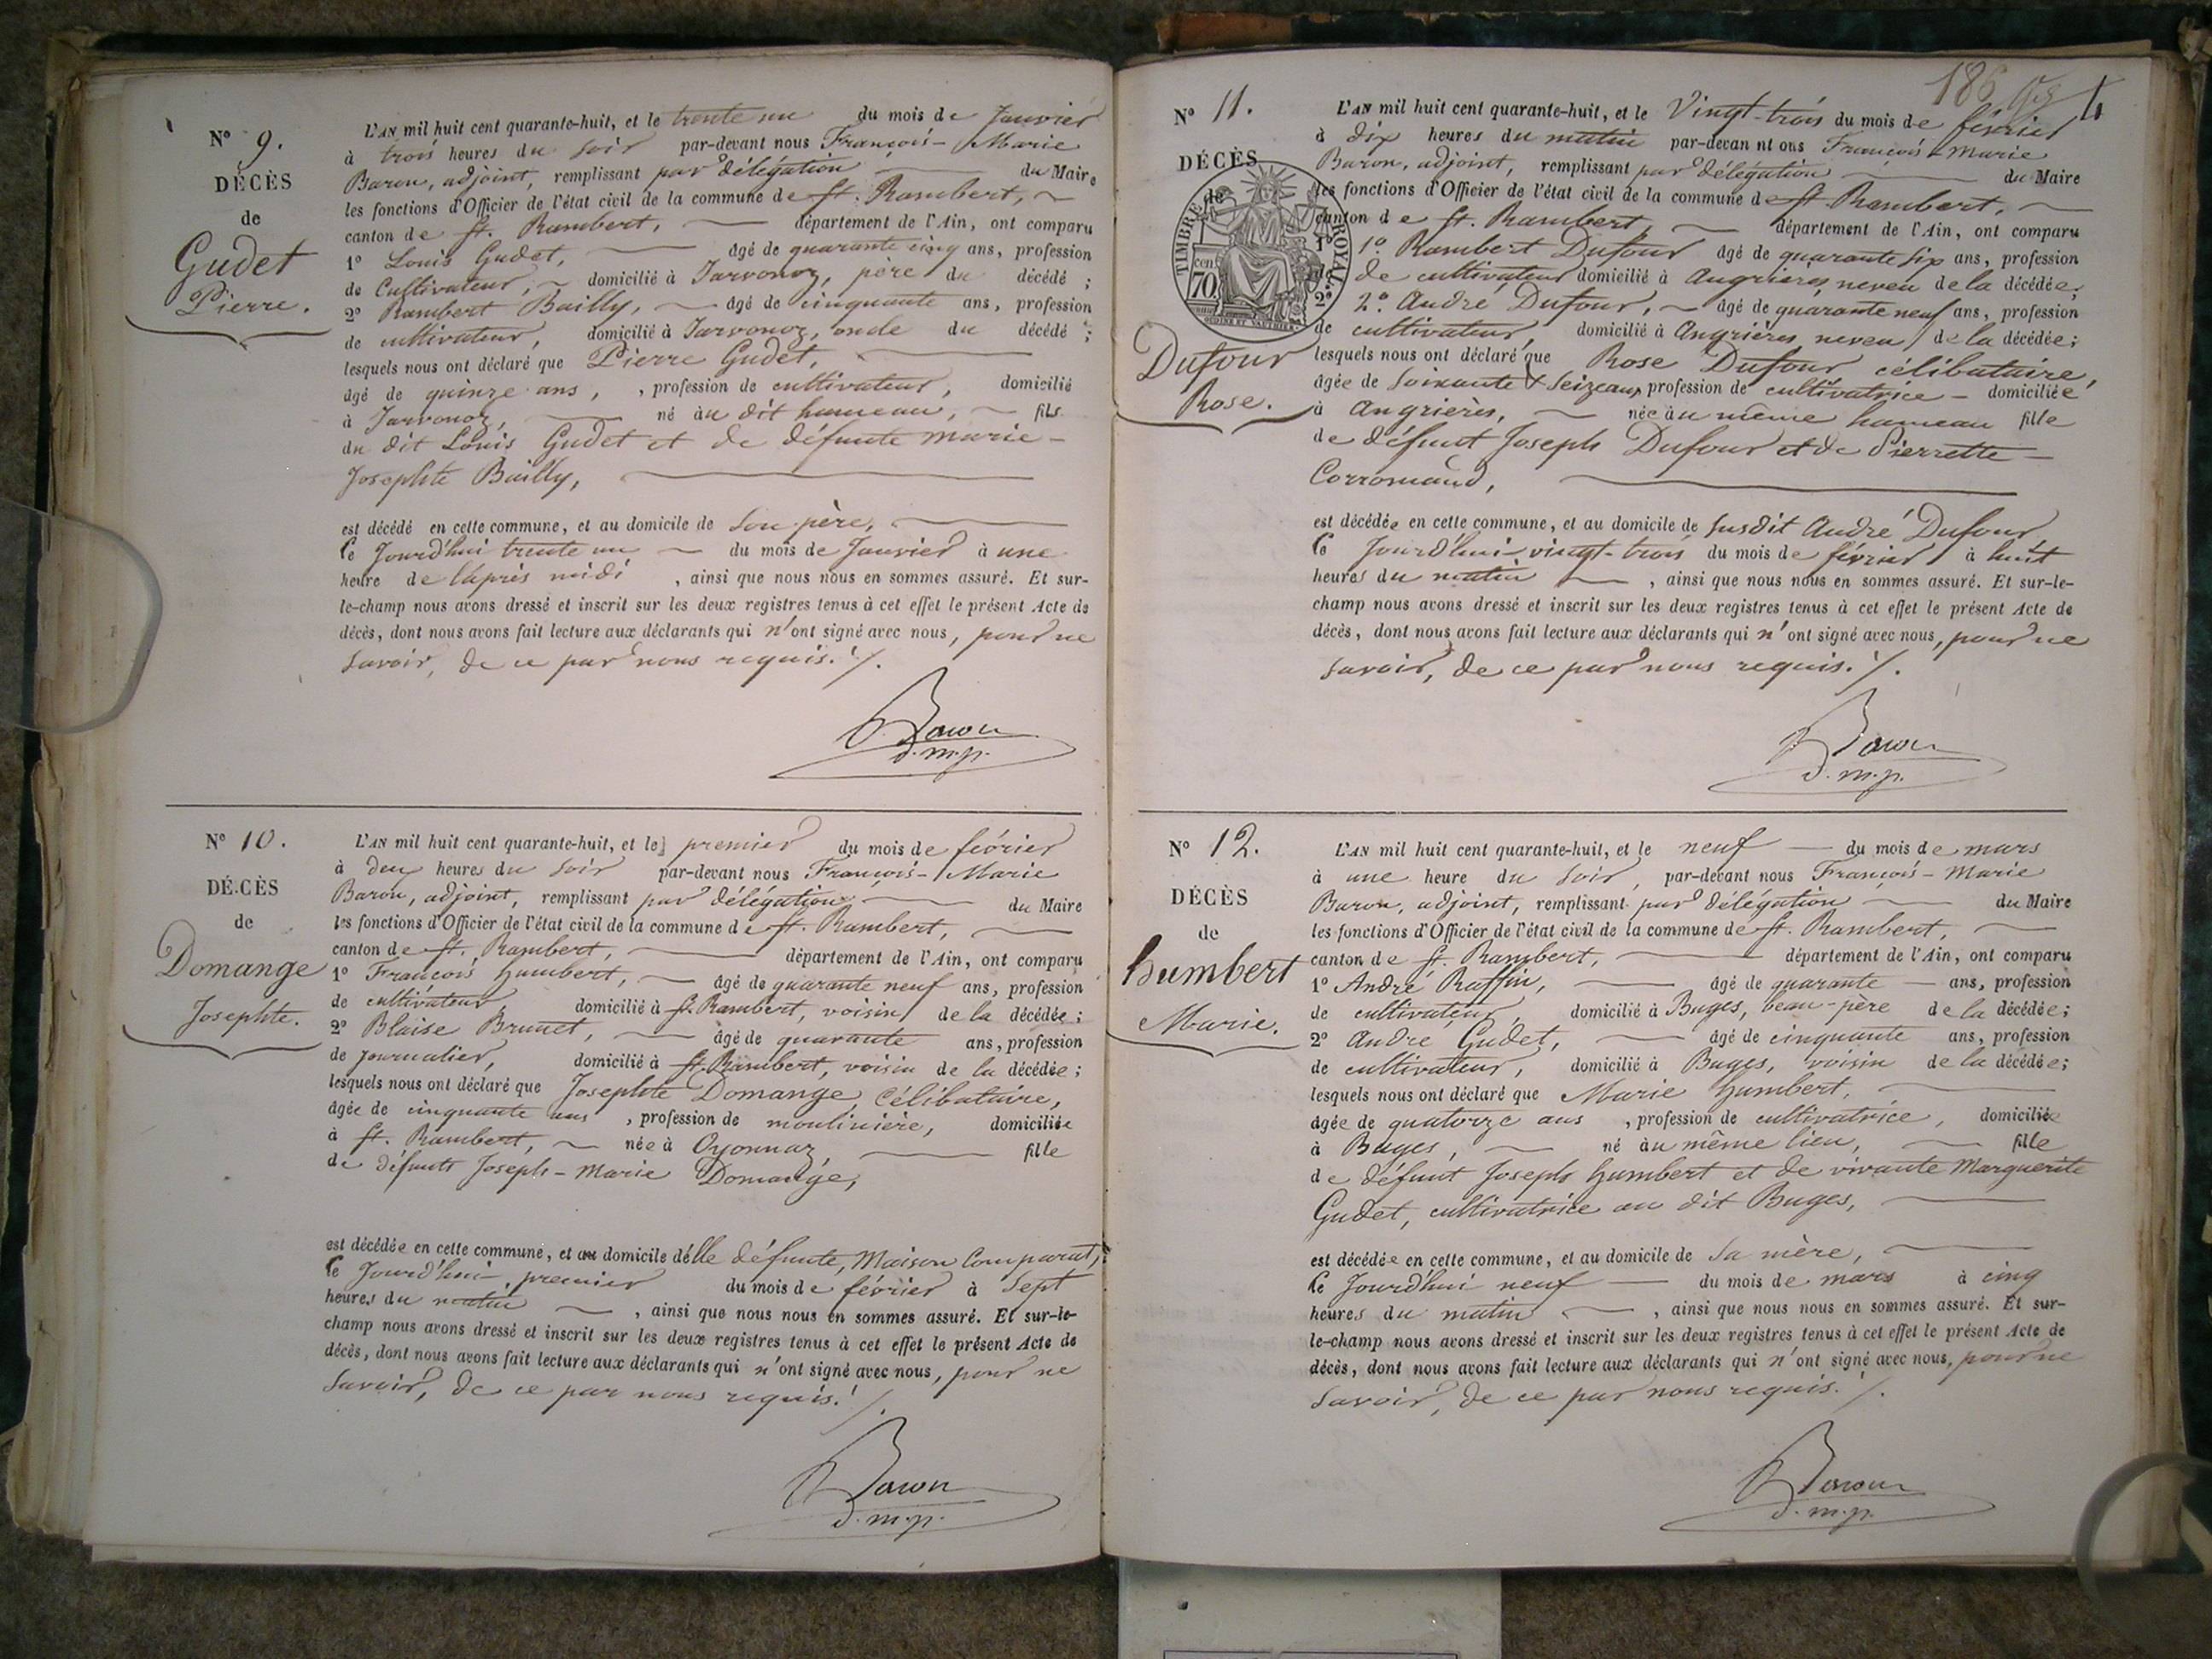 N° 9.
DÉCÈS
de
Gudet
Pierre.
L'AN mil huit cent quarante-huit, et le trente un du mois de Janvier
à trois heures du soir par-devant nous François-Marie
Baron, adjoint, remplissant par délégation du Maire
les fonctions d'Officier de l'état civil de la commune de St. Rambert,
canton de St. Rambert, département de l'Ain, ont comparu
1° Louis Gudet, âgé de quarante cinq ans, profession
de Cultivateur, domicilié à Jarvonoz, père du décédé ;
2° Rambert Bailly, âgé de cinquante ans, profession
de cultivateur, domicilié à Jarvonoz, oncle du décédé ;
lesquels nous ont déclaré que Pierre Gudet,
âgé de quinze ans, , profession de cultivateur, domicilié
à Jarvonoz, né au dit hameau, fils
du dit Louis Gudet et de défunte marie-
Josephte Bailly,
est décédé en cette commune, et au domicile de son père,
le Jourd'hui trente un du mois de Janvier à une
heure de l'après midi , ainsi que nous nous en sommes assuré. Et sur-
le-champ nous avons dressé et inscrit sur les deux registres tenus à cet effet le présent Acte de
décès, dont nous avons fait lecture aux déclarants qui n'ont signé avec nous, pour ne
savoir, de ce par nous requis. /.
Baron
d.m.p.
N° 10.
DÉ.CÈS
de
Domange
Josephte.
L'AN mil huit cent quarante-huit, et le premier du mois de février
à deux heures du soir par-devant nous François-Marie
Baron, adjoint, remplissant par délégation du Maire
les fonctions d'Officier de l'état civil de la commune de St. Rambert,
canton de St. Rambert, département de l'Ain, ont comparu
1° François humbert, âgé de quarante neuf ans, profession
de cultivateur domicilié à St. Rambert, voisin de la décédée ;
2° Blaise Brunet, âgé de quarante ans, profession
de Journalier, domicilié à St. Rambert, voisin de la décédée ;
lesquels nous ont déclaré que Josephte Domange, Célibataire,
âgée de cinquante ans , profession de moulinière, domiciliée
à St. Rambert, née à Oyonnaz, fille
de défunts Joseph-Marie Domange,
est décédée en cette commune, et au domicile de lle défunte, Maison Comparat,
le Jourd'hui premier du mois de février à Sept
heures du matin , ainsi que nous nous en sommes assuré. Et sur-le-
champ nous avons dressé et inscrit sur les deux registres tenus à cet effet le présent Acte de
décès, dont nous avons fait lecture aux déclarants qui n'ont signé avec nous, pour ne
savoir, de ce par nous requis. /.
Baron
d.m.p.
186
N° 11.
DÉCÈS
de
TIMBRE ROYAL
70 cen
Dufour
Rose.
L'AN mil huit cent quarante-huit, et le Vingt-trois du mois de février
à dix heures du matin par-devan nt ous François-Marie
Baron, adjoint, remplissant par délégation du Maire
les fonctions d'Officier de l'état civil de la commune de St. Rambert,
canton de St. Rambert, département de l'Ain, ont comparu
1° 1° Rambert Dufour âgé de quarante six ans, profession
de de cultivateur domicilié à Angrières neveu de la décédée,
2° 2° André Dufour, âgé de quarante neuf ans, profession
de cultivateur, domicilié à Angrières, neveu de la décédée ;
lesquels nous ont déclaré que Rose Dufour célibataire,
âgée de soixante & seize ans, profession de cultivatrice - domiciliée
à Angrières, née au même hameau fille
de défunt Joseph Dufour et de Pierrette
Corromand,
est décédée en cette commune, et au domicile de susdit André Dufour
le Jourd'hui vingt-trois du mois de février à huit
heures du matin , ainsi que nous nous en sommes assuré. Et sur-le-
champ nous avons dressé et inscrit sur les deux registres tenus à cet effet le présent Acte de
décès, dont nous avons fait lecture aux déclarants qui n'ont signé avec nous, pour ne
savoir, de ce par nous requis. /.
Baron
d.m.p.
N° 12.
DÉCÈS
de
humbert
Marie.
L'AN mil huit cent quarante-huit, et le neuf du mois de mars
à une heure du soir, par-devant nous François-Marie
Baron, adjoint, remplissant par délégation du Maire
les fonctions d'Officier de l'état civil de la commune de St. Rambert,
canton de St. Rambert, département de l'Ain, ont comparu
1° André Ruffin, âgé de quarante ans, profession
de cultivateur, domicilié à Buges, beau-père de la décédée ;
2° André Gudet, âgé de cinquante ans, profession
de cultivateur, domicilié à Buges, voisin de la décédée ;
lesquels nous ont déclaré que Marie humbert,
âgée de quatorze ans , profession de cultivatrice, domiciliée
à Buges, né au même lieu, fille
de défunt Joseph humbert et de vivante Marguerite
Gudet, cultivatrice au dit Buges,
est décédée en cette commune, et au domicile de sa mère,
le Jourd'hui neuf du mois de mars à cinq
heures du matin , ainsi que nous nous en sommes assuré. Et sur-
le-champ nous avons dressé et inscrit sur les deux registres tenus à cet effet le présent Acte de
décès, dont nous avons fait lecture aux déclarants qui n'ont signé avec nous, pour ne
savoir, de ce par nous requis. /.
Baron
d.m.p.